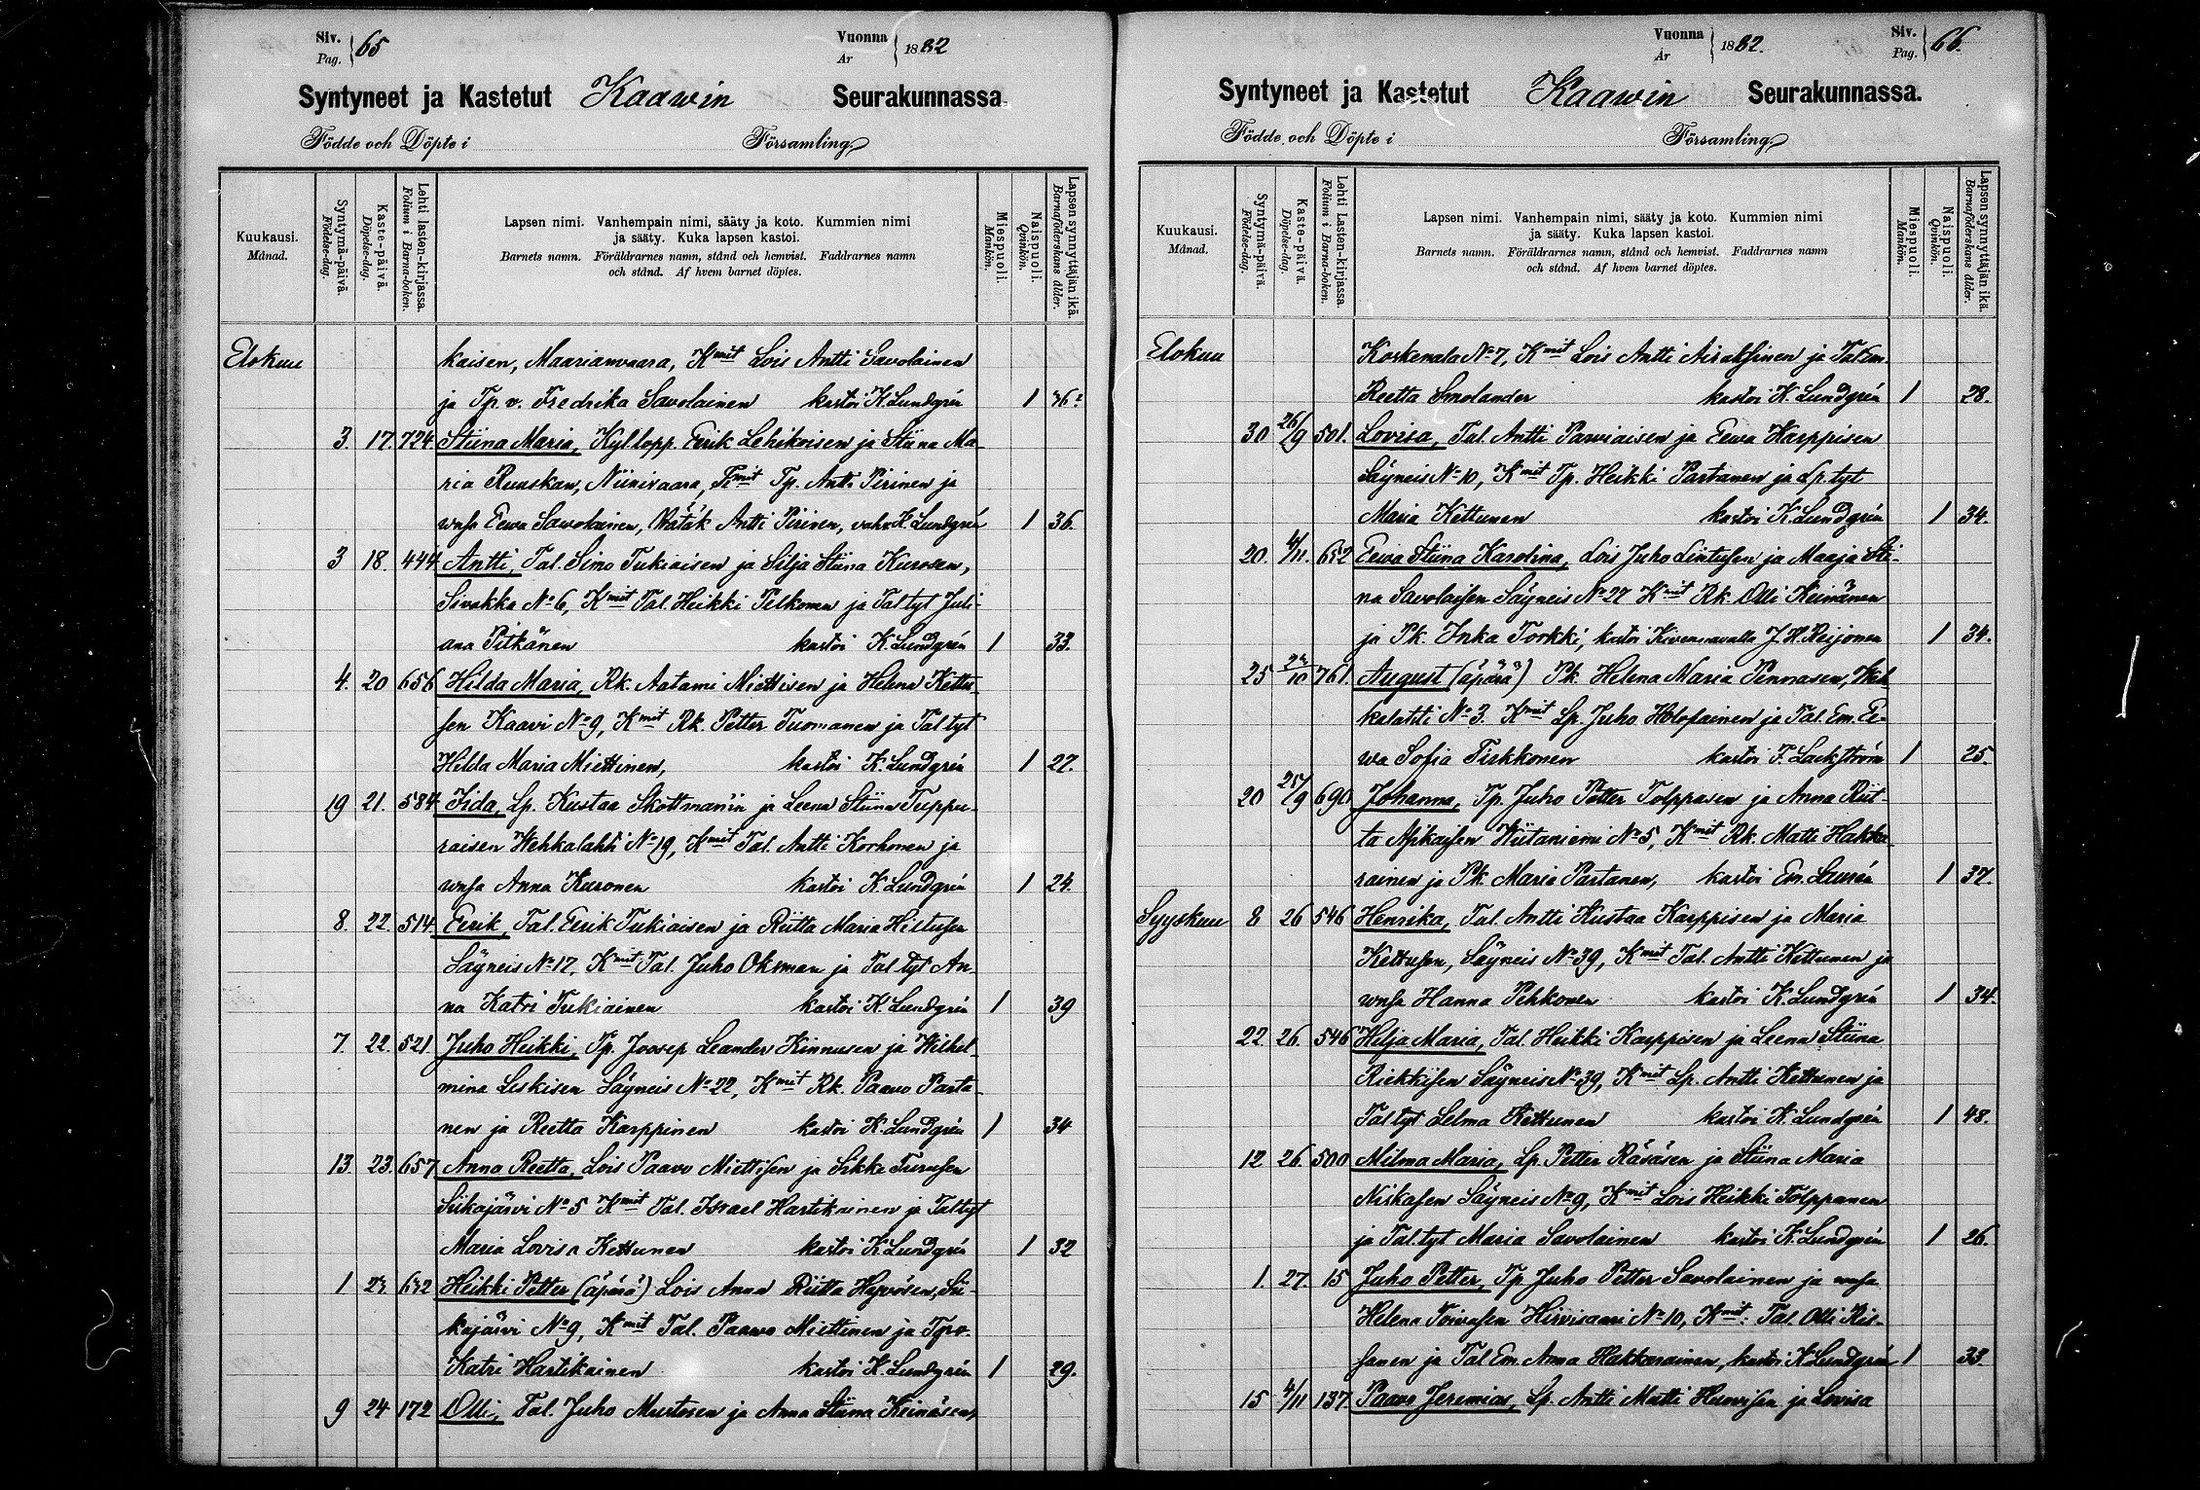 Siv. Pag. 65
Vuonna År 1882
Syntyneet ja Kastetut Kaawin Seurakunnassa
Födde och Döpte i Församling
Kuukausi. Månad.
Syntymä-päivä. Födelse-dag.
Kaste-päivä. Döpelse-dag.
Lehti lasten-kirjassa. Folium i Barna-boken.
Lapsen nimi. Vanhempain nimi, sääty ja koto. Kummien nimi
ja sääty. Kuka lapsen kastoi.
Barnets namn. Föräldrarnes namn, stånd och hemvist. Faddrarnes namn
och stånd. Af hvem barnet döptes.
Miespuoli. Mankön.
Naispuoli. Qvinkön.
Lapsen synnyttäjän ikä. Barnaföderskans ålder.
Elokuu kaisen, Maarianvaara, Kmit Lois Antti Savolainen
ja Tp. v. Fredrika Savolainen kastoi K. Lundgrén 1 36
3. 17. 724. Stiina Maria, Kyl lopp. Eerik Lehikoisen ja Stiina Ma-
ria Ruuskan, Niinivaara, Kmit Tp. Antti Pirinen ja
wnsa Eewa Sawolainen, Antti Pirinen, vahv. K. Lundgrén 1 36.
3 18. 444 Antti, Tal. Simo Tukiaisen ja Silja Stiina Kurosen,
Sivakka No 6, Kmit Tal. Heikki Pelkonen ja Tal tyt Juli-
ana Pitkänen kastoi K. Lundgrén 1 33.
4. 20 656 Hilda Maria, Rk. Aatami Miettisen ja Helena Kettu-
sen Kaavi No 9, Kmit Rk. Petter Tuomanen ja Tal tyt
Hilda Maria Miettinen, kastoi K. Lundgrén 1 27.
19 21. 584 Iida, Lp. Kustaa Skottman'in ja Leena Stiina Tuppu-
raisen Wehkalahti No 19, Kmit Tal. Antti Korhonen ja
wnsa Anna Kuronen kastoi K. Lundgrén 1 24.
8. 22. 514 Eerik, Tal. Eerik Tukiaisen ja Riitta Maria Hiltusen
Säyneis No 17, Kmit Tal. Juho Oksman ja Tal tyt An-
na Katri Tukiainen kastoi K. Lundgrén 1 39
7. 22. 521 Juho Heikki, Tp. Joosep Leander Kinnusen ja Wilhel-
mina Leskisen Säyneis No 22, Kmit Rk. Paavo Parta-
nen ja Reetta Karppinen kastoi K. Lundgrén 1 34
13. 23. 657 Anna Reetta, Lois Paavo Miettisen ja Sikka Turusen
Siikajärvi No 5 Kmit Tal. Israel Hartikainen ja Tal tyt
Maria Lovisa Kettunen kastoi K. Lundgrén 1 32
1 23. 632 Heikki Petter (äpärä) Lois Anna Riitta Hyvösen, Sii-
kajärvi No 9, Kmit Tal. Paawo Miettinen ja Tpv.
Katri Hartikainen kastoi K. Lundgrén 1 29.
9 24 172 Olli, Tal. Juho Murtosen ja Anna Stiina Keinäsen,
Vuonna År 1882.
Siv. Pag. 66.
Syntyneet ja Kastetut Kaawin Seurakunnassa.
Födde och Döpte i Församling
Kuukausi. Månad.
Syntymä-päivä. Födelse-dag.
Kaste-päivä. Döpelse-dag.
Lehti Lasten-kirjassa. Folium i Barna-boken.
Lapsen nimi. Vanhempain nimi, sääty ja koto. Kummien nimi
ja sääty. Kuka lapsen kastoi.
Barnets namn. Föräldrarnes namn, stånd och hemvist. Faddrarnes namn
och stånd. Af hvem barnet döptes.
Miespuoli. Mankön.
Naispuoli. Qvinkön.
Lapsen synnyttäjän ikä. Barnaföderskans ålder.
Elokuu Koskenala No 7, Kmit Lois Antti Airaksinen ja Tal Em.
Reetta Smolander kastoi K. Lundgrén 1 28.
30 26/9 501. Lovisa, Tal. Antti Parviaisen ja Eewa Karppisen
Säyneis No 10, Kmit Tp. Heikki Partanen ja Lp. tyt
Maria Kettunen kastoi K. Lundgrén 1 34.
20. 4/11. 652 Eewa Stiina Karolina, Lois Juho Lintusen ja Maaja Sti-
na Savolaisen Säyneis No 27 Kmit Rk. Olli Keinänen
ja Pk. Inka Torkki, kastoi J. H. Reijonen 1 34.
25 23/10 761. August (äpärä) Pk. Helena Maria Pennasen, Weh-
kalahti No 3. Kmit Lp. Juho Holopainen ja Tal. Em. Ee-
wa Sofia Tirkkonen kastoi F. Lackström 1 25.
20 25/9 690 Johanna, Tp. Juho Petter Tolppasen ja Anna Riit-
ta Asikaisen Wiitaniemi No 5, Kmit Rk. Matti Hakka-
rainen ja Pk. Maria Partanen, kastoi Em. Laurén 1 37.
Syyskuu 8 26 546 Henrika, Tal. Antti Kustaa Karppisen ja Maria
Kettusen, Säyneis No 39, Kmit Tal. Antti Kettunen ja
wnsa Hanna Pehkonen kastoi K. Lundgrén 1 34.
22. 26. 546 Hilja Maria, Tal. Heikki Karppisen ja Leena Stiina
Riekkisen Säyneis No 39, Kmit Lp. Antti Kettunen ja
Tal tyt Selma Kettunen kastoi K. Lundgrén 1 48.
12 26. 500 Milma Maria, Lp. Petter Räsäsen ja Stiina Maria
Niskasen Säyneis No 9, Kmit Lois Heikki Tolppanen
ja Tal. tyt Maria Savolainen kastoi K. Lundgrén 1 26.
1. 27. 15 Juho Petter, Tp Juho Petter Savolainen ja wnsa
Helena Toivasen Hirvisaari No 10, Kmit: Tal. Olli Ris-
sanen ja Tal Em. Anna Hakkarainen, kastoi K. Lundgrén 1 33.
15 4/11 137 Paavo Jeremias, Lp. Antti Matti ja Lovisa